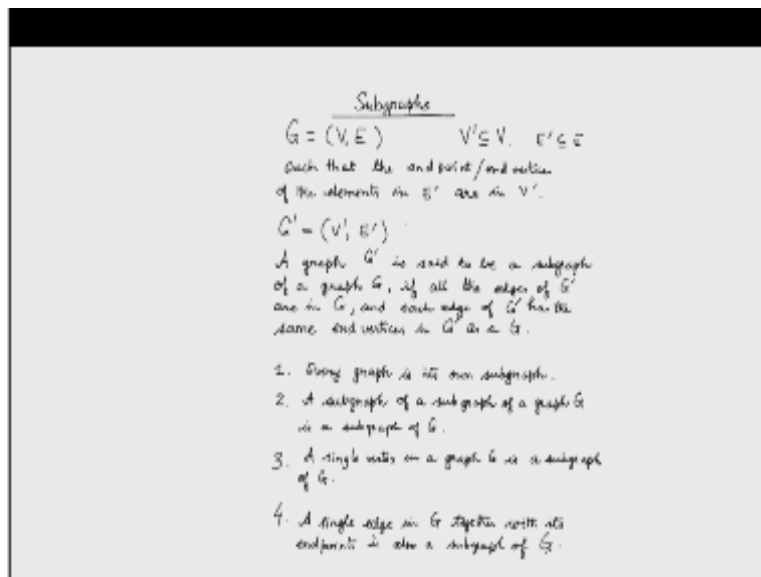 Subgraphs
G = (V, E) V' ⊆ V, E' ⊆ E
such that the endpoint/endvertices
of the elements in E' are in V'.
G' = (V', E')
A graph G' is said to be a subgraph
of a graph G, if all the edges of G'
are in G, and each edge of G' has the
same end vertices in G' as in G.
1. Every graph is its own subgraph.
2. A subgraph of a subgraph of a graph G
is a subgraph of G.
3. A single vertex in a graph G is a subgraph
of G.
4. A single edge in G together with its
endpoints is also a subgraph of G.